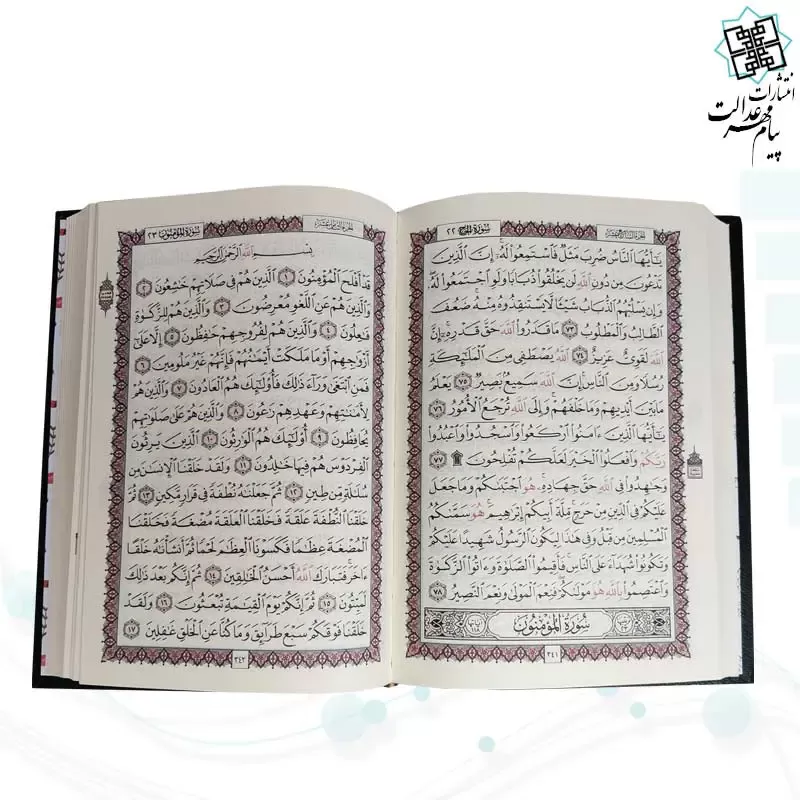 انتشارات
پیام مهر عدالت
سُورَةُ الحَجّ ٢٢
يَٰٓأَيُّهَا ٱلنَّاسُ ضُرِبَ مَثَلٌ فَٱسْتَمِعُوا۟ لَهُۥٓ إِنَّ ٱلَّذِينَ
تَدْعُونَ مِن دُونِ ٱللَّهِ لَن يَخْلُقُوا۟ ذُبَابًا وَلَوِ ٱجْتَمَعُوا۟ لَهُۥ
وَإِن يَسْلُبْهُمُ ٱلذُّبَابُ شَيْـًٔا لَّا يَسْتَنقِذُوهُ مِنْهُ ضَعُفَ
ٱلطَّالِبُ وَٱلْمَطْلُوبُ ٧٣ مَا قَدَرُوا۟ ٱللَّهَ حَقَّ قَدْرِهِۦٓ إِنَّ
ٱللَّهَ لَقَوِىٌّ عَزِيزٌ ٧٤ ٱللَّهُ يَصْطَفِى مِنَ ٱلْمَلَٰٓئِكَةِ
رُسُلًا وَمِنَ ٱلنَّاسِ إِنَّ ٱللَّهَ سَمِيعٌۢ بَصِيرٌ ٧٥ يَعْلَمُ
مَا بَيْنَ أَيْدِيهِمْ وَمَا خَلْفَهُمْ وَإِلَى ٱللَّهِ تُرْجَعُ ٱلْأُمُورُ ٧٦
يَٰٓأَيُّهَا ٱلَّذِينَ ءَامَنُوا۟ ٱرْكَعُوا۟ وَٱسْجُدُوا۟ وَٱعْبُدُوا۟
رَبَّكُمْ وَٱفْعَلُوا۟ ٱلْخَيْرَ لَعَلَّكُمْ تُفْلِحُونَ ۩ ٧٧
وَجَٰهِدُوا۟ فِى ٱللَّهِ حَقَّ جِهَادِهِۦ هُوَ ٱجْتَبَىٰكُمْ وَمَا جَعَلَ
عَلَيْكُمْ فِى ٱلدِّينِ مِنْ حَرَجٍ مِّلَّةَ أَبِيكُمْ إِبْرَٰهِيمَ هُوَ سَمَّىٰكُمُ
ٱلْمُسْلِمِينَ مِن قَبْلُ وَفِى هَٰذَا لِيَكُونَ ٱلرَّسُولُ شَهِيدًا عَلَيْكُمْ
وَتَكُونُوا۟ شُهَدَآءَ عَلَى ٱلنَّاسِ فَأَقِيمُوا۟ ٱلصَّلَوٰةَ وَءَاتُوا۟ ٱلزَّكَوٰةَ
وَٱعْتَصِمُوا۟ بِٱللَّهِ هُوَ مَوْلَىٰكُمْ فَنِعْمَ ٱلْمَوْلَىٰ وَنِعْمَ ٱلنَّصِيرُ ٧٨
سُورَةُ المُؤْمِنُونَ
٣٤١
سُورَةُ المُؤْمِنُونَ ٢٣
بِسْمِ ٱللَّهِ ٱلرَّحْمَٰنِ ٱلرَّحِيمِ
قَدْ أَفْلَحَ ٱلْمُؤْمِنُونَ ١ ٱلَّذِينَ هُمْ فِى صَلَاتِهِمْ خَٰشِعُونَ ٢
وَٱلَّذِينَ هُمْ عَنِ ٱللَّغْوِ مُعْرِضُونَ ٣ وَٱلَّذِينَ هُمْ لِلزَّكَوٰةِ
فَٰعِلُونَ ٤ وَٱلَّذِينَ هُمْ لِفُرُوجِهِمْ حَٰفِظُونَ ٥ إِلَّا عَلَىٰٓ
أَزْوَٰجِهِمْ أَوْ مَا مَلَكَتْ أَيْمَٰنُهُمْ فَإِنَّهُمْ غَيْرُ مَلُومِينَ ٦
فَمَنِ ٱبْتَغَىٰ وَرَآءَ ذَٰلِكَ فَأُو۟لَٰٓئِكَ هُمُ ٱلْعَادُونَ ٧ وَٱلَّذِينَ هُمْ
لِأَمَٰنَٰتِهِمْ وَعَهْدِهِمْ رَٰعُونَ ٨ وَٱلَّذِينَ هُمْ عَلَىٰ صَلَوَٰتِهِمْ
يُحَافِظُونَ ٩ أُو۟لَٰٓئِكَ هُمُ ٱلْوَٰرِثُونَ ١٠ ٱلَّذِينَ يَرِثُونَ
ٱلْفِرْدَوْسَ هُمْ فِيهَا خَٰلِدُونَ ١١ وَلَقَدْ خَلَقْنَا ٱلْإِنسَٰنَ مِن
سُلَٰلَةٍ مِّن طِينٍ ١٢ ثُمَّ جَعَلْنَٰهُ نُطْفَةً فِى قَرَارٍ مَّكِينٍ ١٣ ثُمَّ
خَلَقْنَا ٱلنُّطْفَةَ عَلَقَةً فَخَلَقْنَا ٱلْعَلَقَةَ مُضْغَةً فَخَلَقْنَا
ٱلْمُضْغَةَ عِظَٰمًا فَكَسَوْنَا ٱلْعِظَٰمَ لَحْمًا ثُمَّ أَنشَأْنَٰهُ خَلْقًا
ءَاخَرَ فَتَبَارَكَ ٱللَّهُ أَحْسَنُ ٱلْخَٰلِقِينَ ١٤ ثُمَّ إِنَّكُم بَعْدَ ذَٰلِكَ
لَمَيِّتُونَ ١٥ ثُمَّ إِنَّكُمْ يَوْمَ ٱلْقِيَٰمَةِ تُبْعَثُونَ ١٦ وَلَقَدْ
خَلَقْنَا فَوْقَكُمْ سَبْعَ طَرَآئِقَ وَمَا كُنَّا عَنِ ٱلْخَلْقِ غَٰفِلِينَ ١٧
٣٤٢